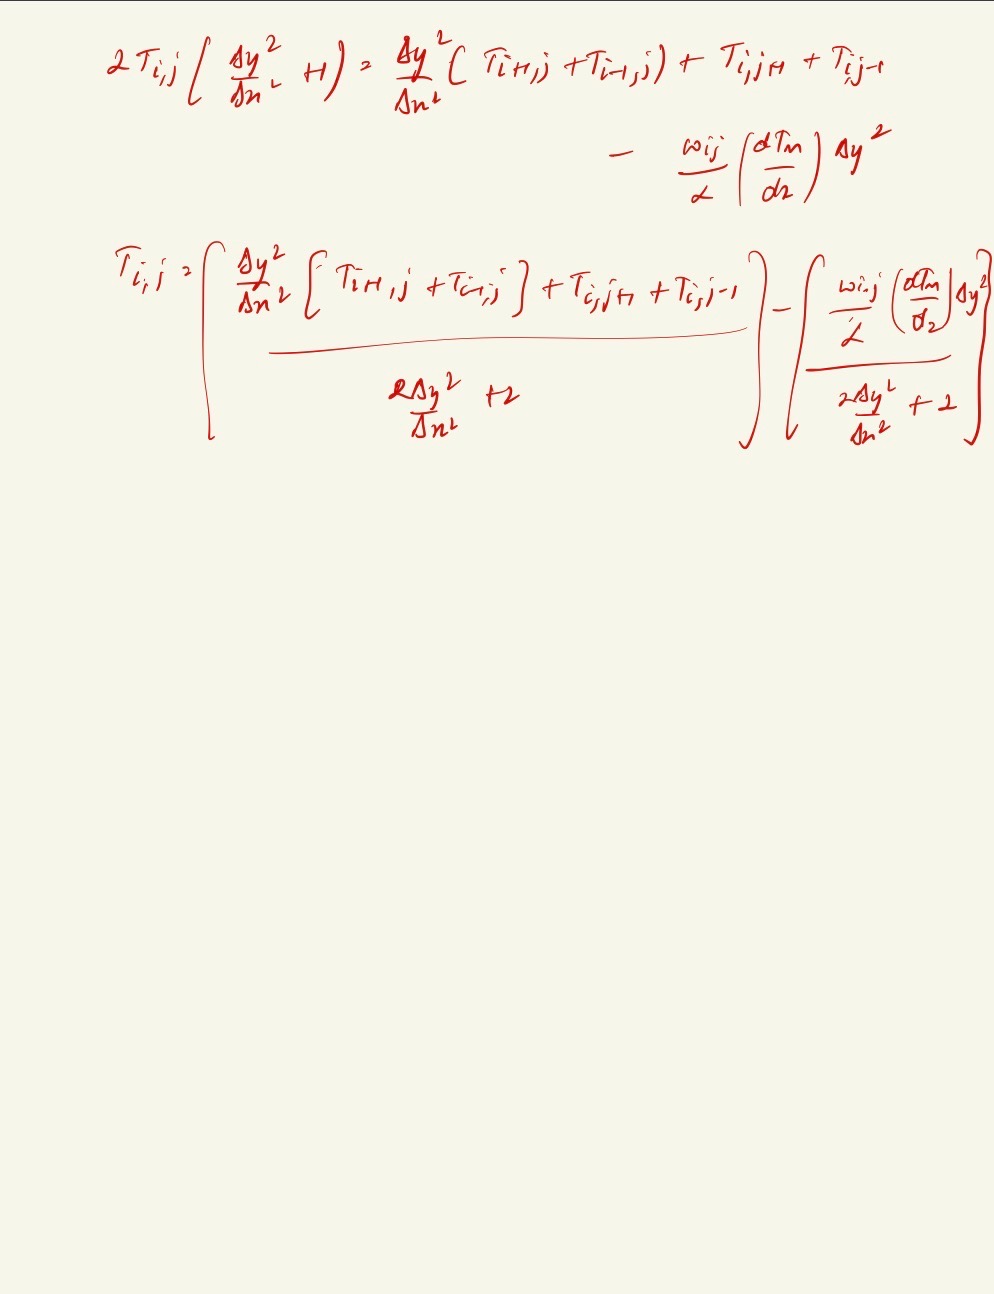 2T_{i,j} ( Δy²/Δx² + 1 ) = Δy²/Δx² ( T_{i+1,j} + T_{i-1,j} ) + T_{i,j+1} + T_{i,j-1}
- w_{ij}/α ( dT_m/dz ) Δy²
T_{i,j} = ( ( Δy²/Δx² [ T_{i+1,j} + T_{i-1,j} ] + T_{i,j+1} + T_{i,j-1} ) / ( 2Δy²/Δx² + 2 ) ) - ( ( w_{i,j}/α ( dT_m/dz ) Δy² ) / ( 2Δy²/Δx² + 2 ) )